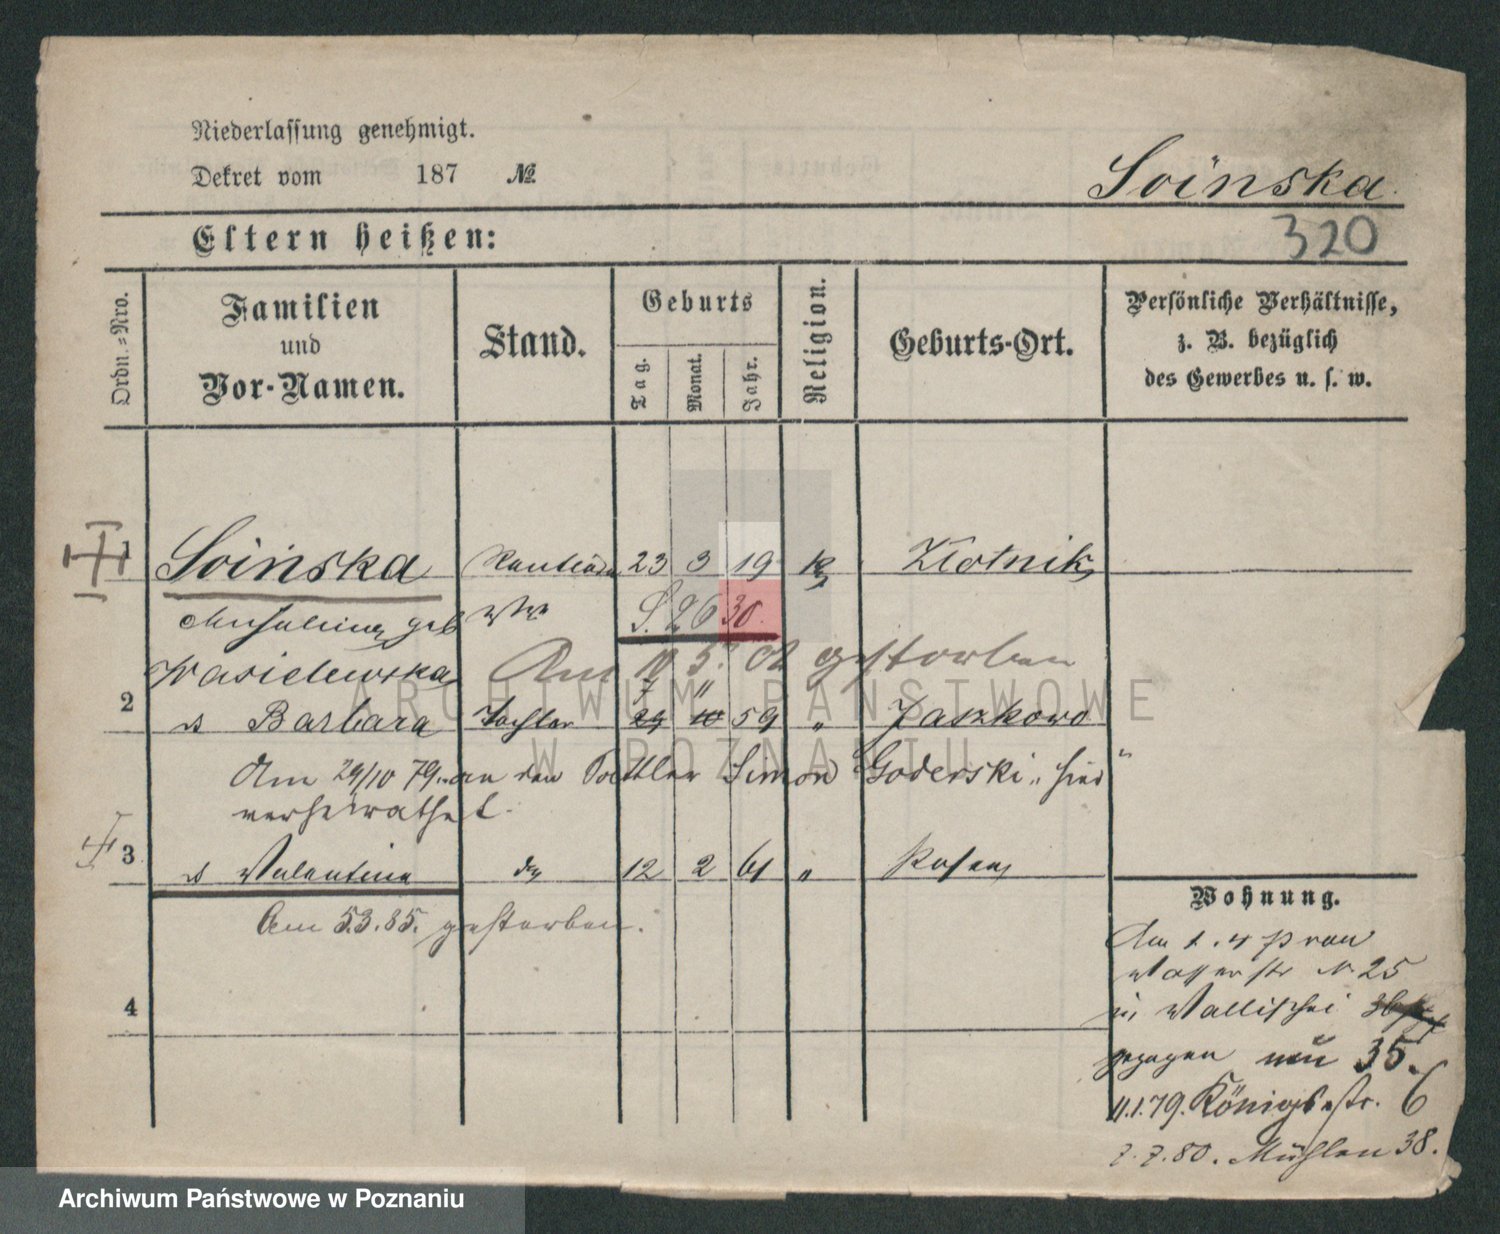 Niederlassung genehmigt.
Dekret vom 187 №
Soinska
Eltern heißen:
320
Ordn.=Nro.
Familien
und
Vor-Namen.
Stand.
Geburts
Tag.
Monat.
Jahr.
Religion.
Geburts-Ort.
Persönliche Verhältnisse,
z. B. bezüglich
des Gewerbes u. s. w.
1 Soinska 23 3 19 Złotnik
geb Wwe 26 30.
Wasielewska
Am 10 5. 02 gestorben
7 "
2 Barbara Tochter 24 10 59 " Jaszkowo
Am 29/10 79 an den Simon Goderski "hier"
verheirathet.
3 Valentina 12 2 61 " Posen
Am 5.3.85. gestorben.
4
Wohnung.
Am 1. 4 von
Wasserstr N 25
n. Wallischei
gezogen neu 35.
11.1.79. Königsstr. 6
7.80. Mühlen 38.
ARCHIWUM PAŃSTWOWE
W POZNANIU
Archiwum Państwowe w Poznaniu